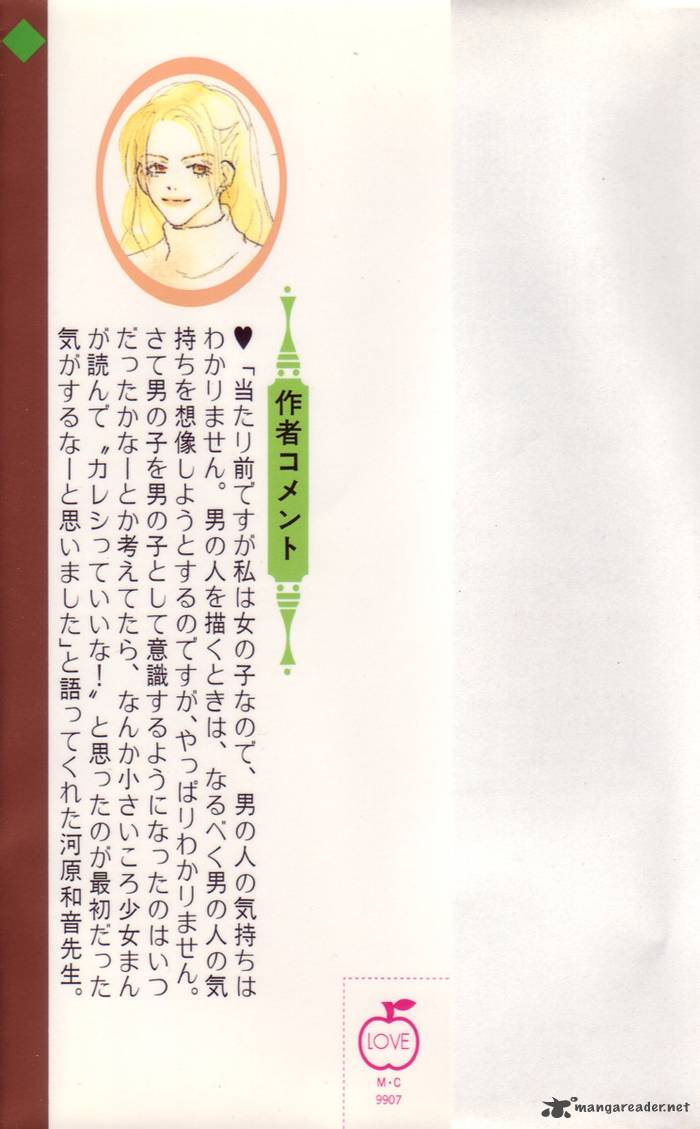 作者コメント
♥「当たり前ですが私は女の子なので、男の人の気持ちは
わかりません。男の人を描くときは、なるべく男の人の気
持ちを想像しようとするのですが、やっぱりわかりません。
さて男の子を男の子として意識するようになったのはいつ
だったかなーとか考えてたら、なんか小さいころ少女まん
が読んで〝カレシっていいな！〟と思ったのが最初だった
気がするなーと思いました」と語ってくれた河原和音先生。
LOVE
M・C
9907
mangareader.net